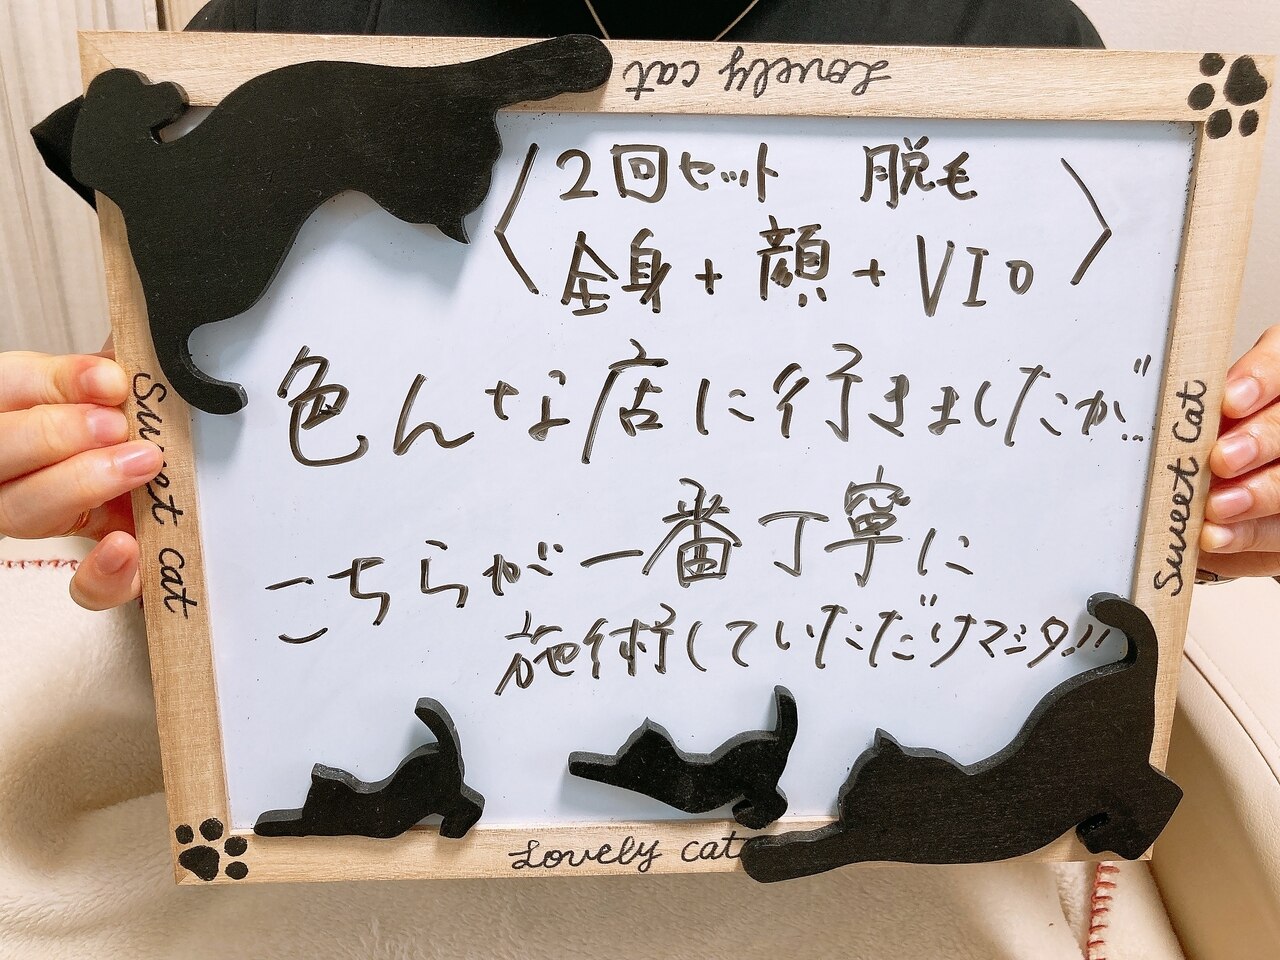 Lovely cat
〈2回セット 脱毛
全身+顔+VIO〉
色んな店に行きましたが‥
こちらが一番丁寧に
施術していただけマシタ!!
Sweet cat
Sweet cat
Lovely cat